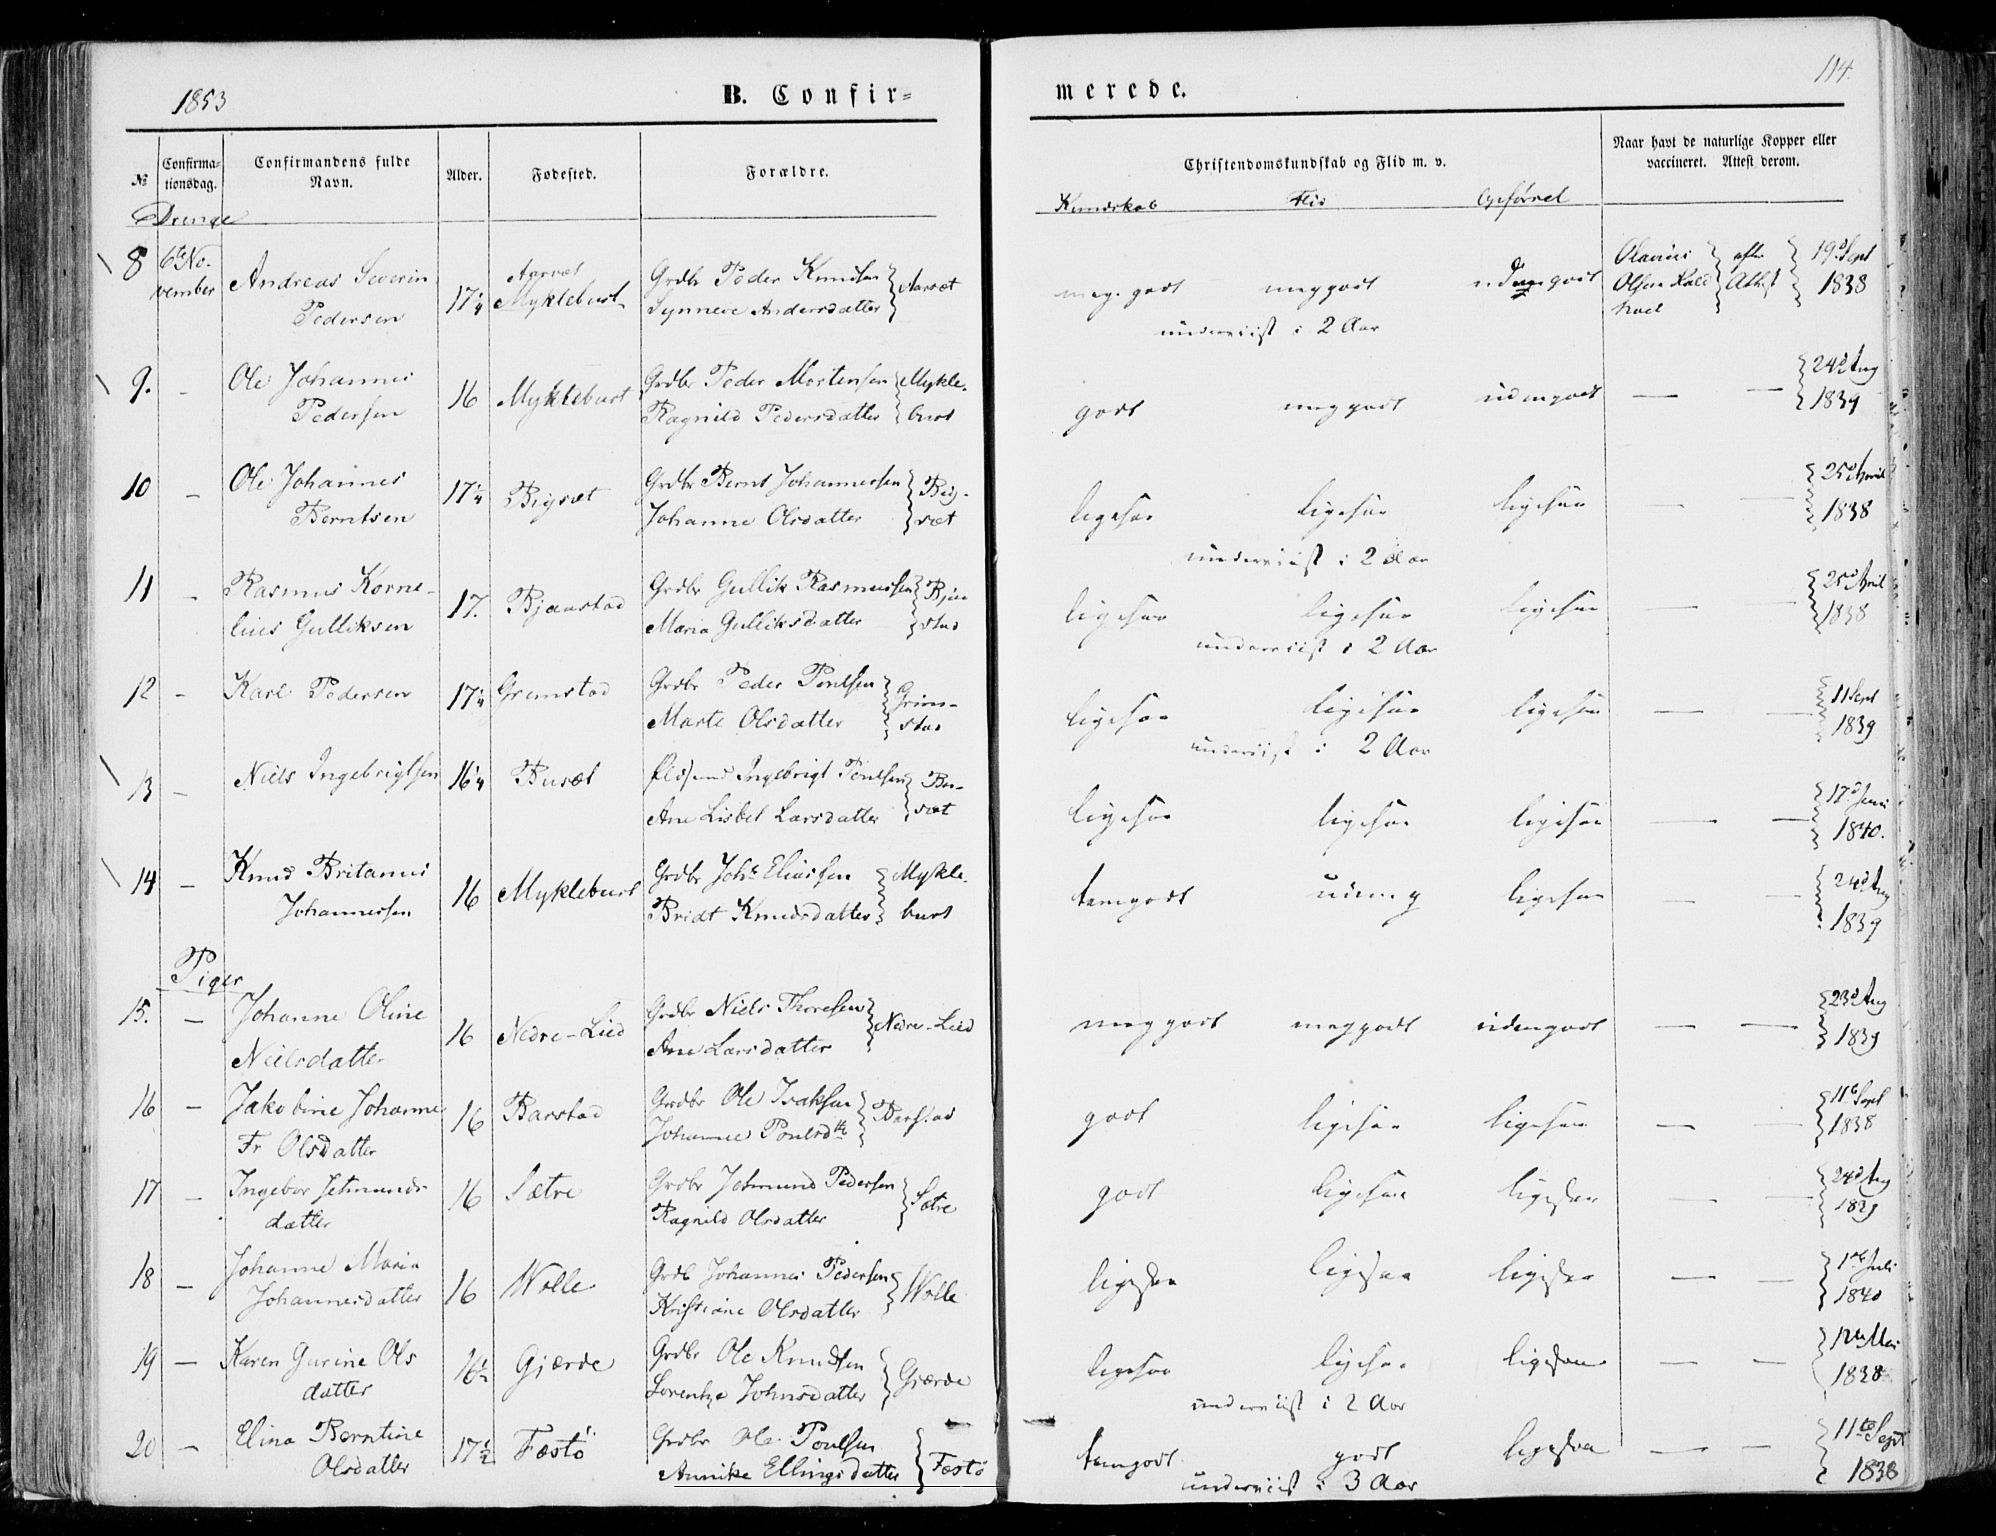 1853
B. Confir=
merede.
114.
№
Confirma-
tionsdag.
Confirmandens fulde
Navn.
Alder.
Fødested.
Forældre.
Christendomskundskab og Flid m. v.
Naar havt de naturlige Kopper eller
vaccineret. Attest derom.
Kundskab Flid Opførsel
Drenge
8 6te No-
vember Andreas Severin
Pedersen 17¼ Aarsæt
Myklebust Grdbr Peder Knudsen
Synneve Andersdatter Aarsæt
meg. godt meg godt udm godt
underviist i 2 Aar
Olsen efter Attest 19d Sept
1838
9. - Ole Johannes
Pedersen 16 Myklebust Grdbr Peder Mortensen
Ragnild Pedersdatter Mykle-
bust
godt meg godt udmgodt — — 24d Aug
1839
10 - Ole Johannes
Berntsen 17¼ Bigsæt Grdbr Bernt Johannessen
Johanne Olsdatter Big-
sæt
ligesaa ligesaa ligesaa — — 25d April
1838
underviist i 2 Aar
11 - Rasmus Korne-
lius Gulliksen 17. Bjaastad Grdbr Gullik Rasmussen
Maria Gulliksdatter Bjaa
stad
ligesaa ligesaa ligesaa — — 25d April
1838
underviist i 2 Aar
12 - Karl Pedersen 17¼ Grimstad Grdbr Peder Poulsen
Marte Olsdatter Grim-
stad
ligesaa ligesaa ligesaa — — 11 Sept
1839
underviist i 2 Aar
13 - Niels Ingebrigtsen 16¼ Busæt Ingebrigt Poulsen
Ane Lisbet Larsdatter Bu-
sæt
ligesaa ligesaa ligesaa — — 17d Juni
1840.
14 - Knud Britanus
Johannessen 16 Myklebust Grdbr Johs Eliassen
Bridt Knudsdatter Mykle-
bust
temgodt udm. g ligesaa — — 24d Aug
1839
Piger
15. - Johanne Oline
Neilsdatter 16 Nedre-Lied Grdbr Niels Thoresen
Ane Larsdatter Nedre-Lied
meg godt meg godt udmgodt — — 23d Aug
1839
16 - Jakobine Johanne
Fr Olsdatter 16 Barstad Grdbr Ole Isaksen
Johanne Poulsdtr Barstad
godt ligesaa ligesaa — — 11te Sept
1838
17 - Ingebor Jetmunds
datter 16 Sætre Grdbr Jetmund Pedersen
Ragnild Olsdatter Sætre
godt ligesaa ligesaa — — 24d Aug
1839
18 - Johanne Maria
Johannesdatter 16 Wolle Grdb Johannes Pedersen
Kristiane Olsdatter Wolle
ligesaa ligesaa ligesaa — — 1ste Juli
1840
19 - Karen Gurine Ols
datter 16½ Gjærde Grdbr Ole Knudsen
Lorentze Johnsdatter Gjærde
ligesaa ligesaa ligesaa — — 12te Mai
1838
underviist i 2 Aar
20 - Elina Berntine
Olsdatter 17½ Fæstø Grdbr Ole Poulsen
Annike Ellingsdatter Fæstø
temgodt godt ligesaa — — 11te Sept
1838
underviist i 3 Aar